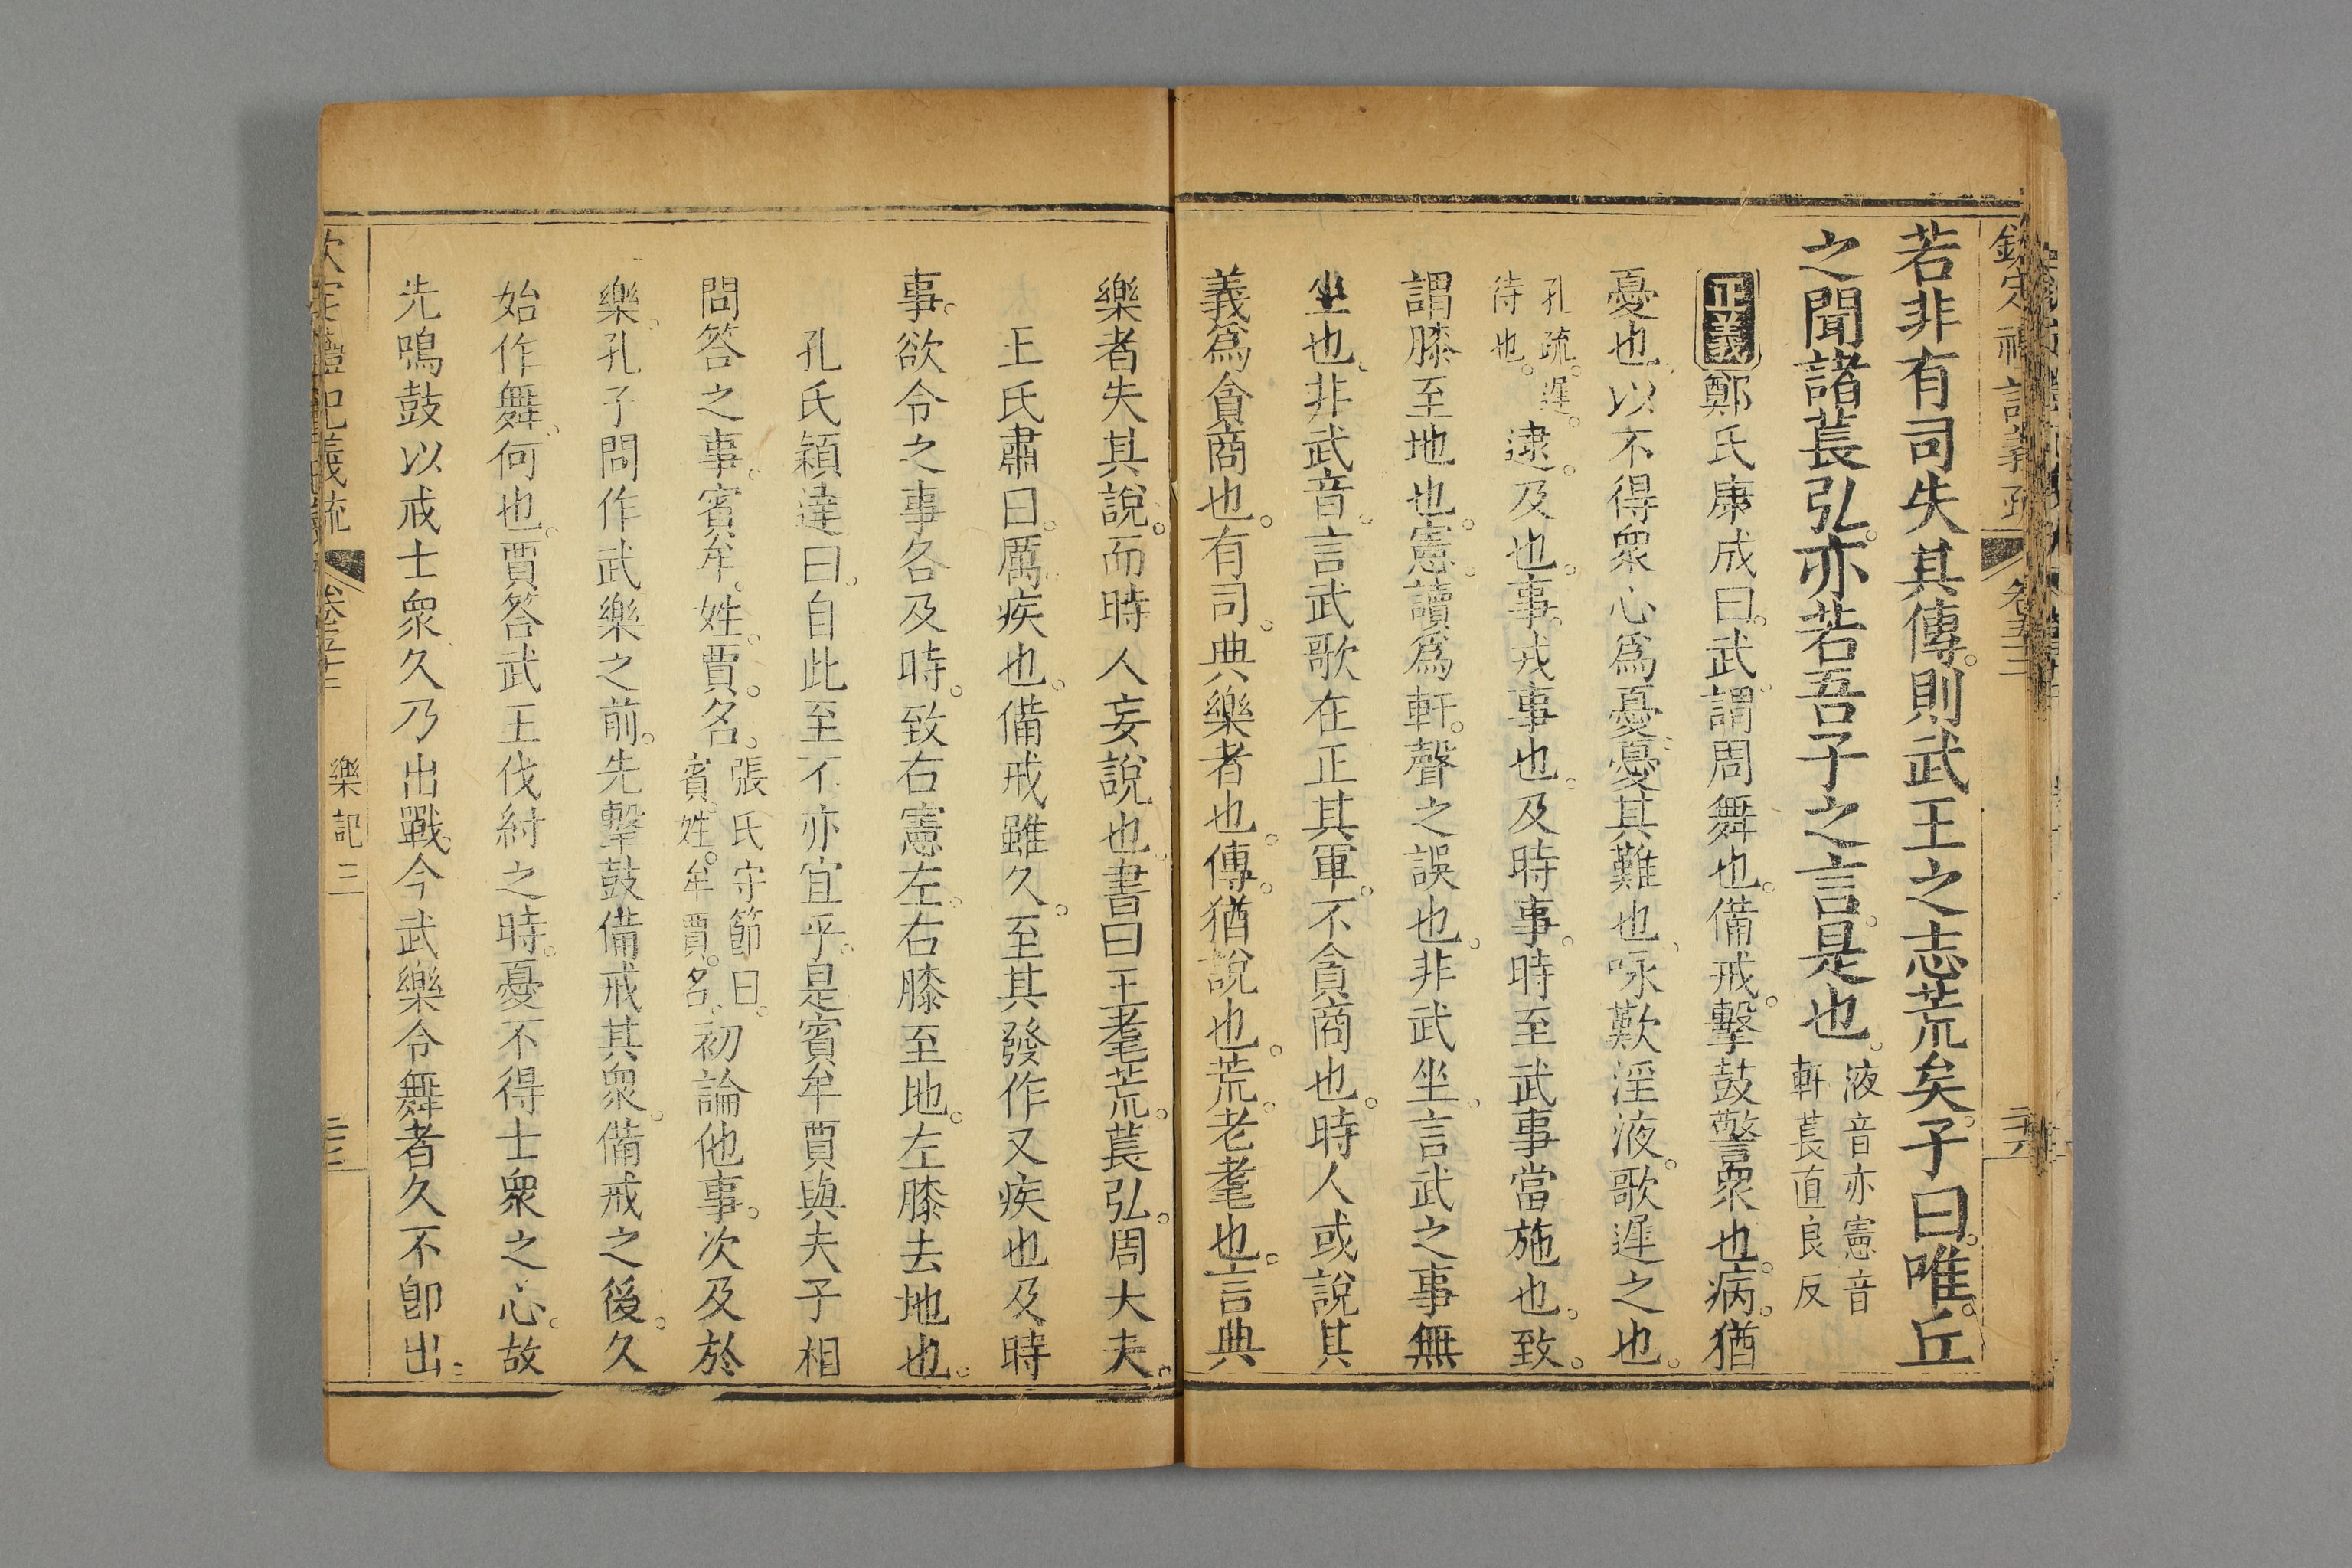 若非有司失其傳。則武王之志荒矣。子曰。唯。丘
之聞諸萇弘。亦若吾子之言。是也。液音亦憲音
軒萇直良反
正義 鄭氏康成曰。武。謂周舞也。備戒。擊鼓警衆也。病。猶
憂也。以不得衆心爲憂。憂其難也。咏歎淫液。歌遲之也。
孔疏。遲。
待也。
逮。及也。事。戎事也。及時事。時至武事當施也。致。
謂膝至地也。憲。讀爲軒。聲之誤也。非武坐。言武之事無
坐也。非武音。言武歌在正其軍。不貪商也。時人或說其
義爲貪商也。有司。典樂者也。傳。猶說也。荒。老耄也。言典
樂者失其說。而時人妄說也。書曰王耄荒。萇弘。周大夫。
王氏肅曰。厲。疾也。備戒雖久。至其發作又疾也。及時
事。欲令之事各及時。致右憲左。右膝至地。左膝去地也。
孔氏穎達曰。自此至不亦宜乎。是賓牟賈與夫子相
問答之事。賓牟。姓。賈。名。
張氏守節曰。
賓。姓。牟賈。名。
初論他事。次及於
樂。孔子問作武樂之前。先擊鼓備戒其衆。備戒之後。久
始作舞。何也。賈答武王伐紂之時。憂不得士衆之心。故
先鳴鼓以戒士衆。久乃出戰。今武樂令舞者久不卽出。
樂記三